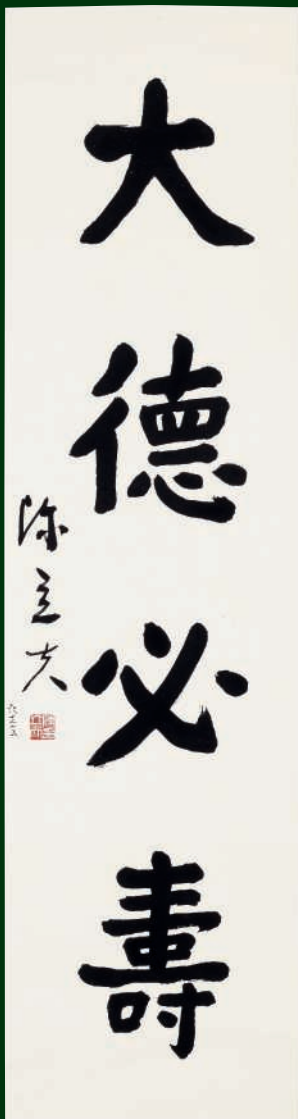 大德必壽
陳立夫